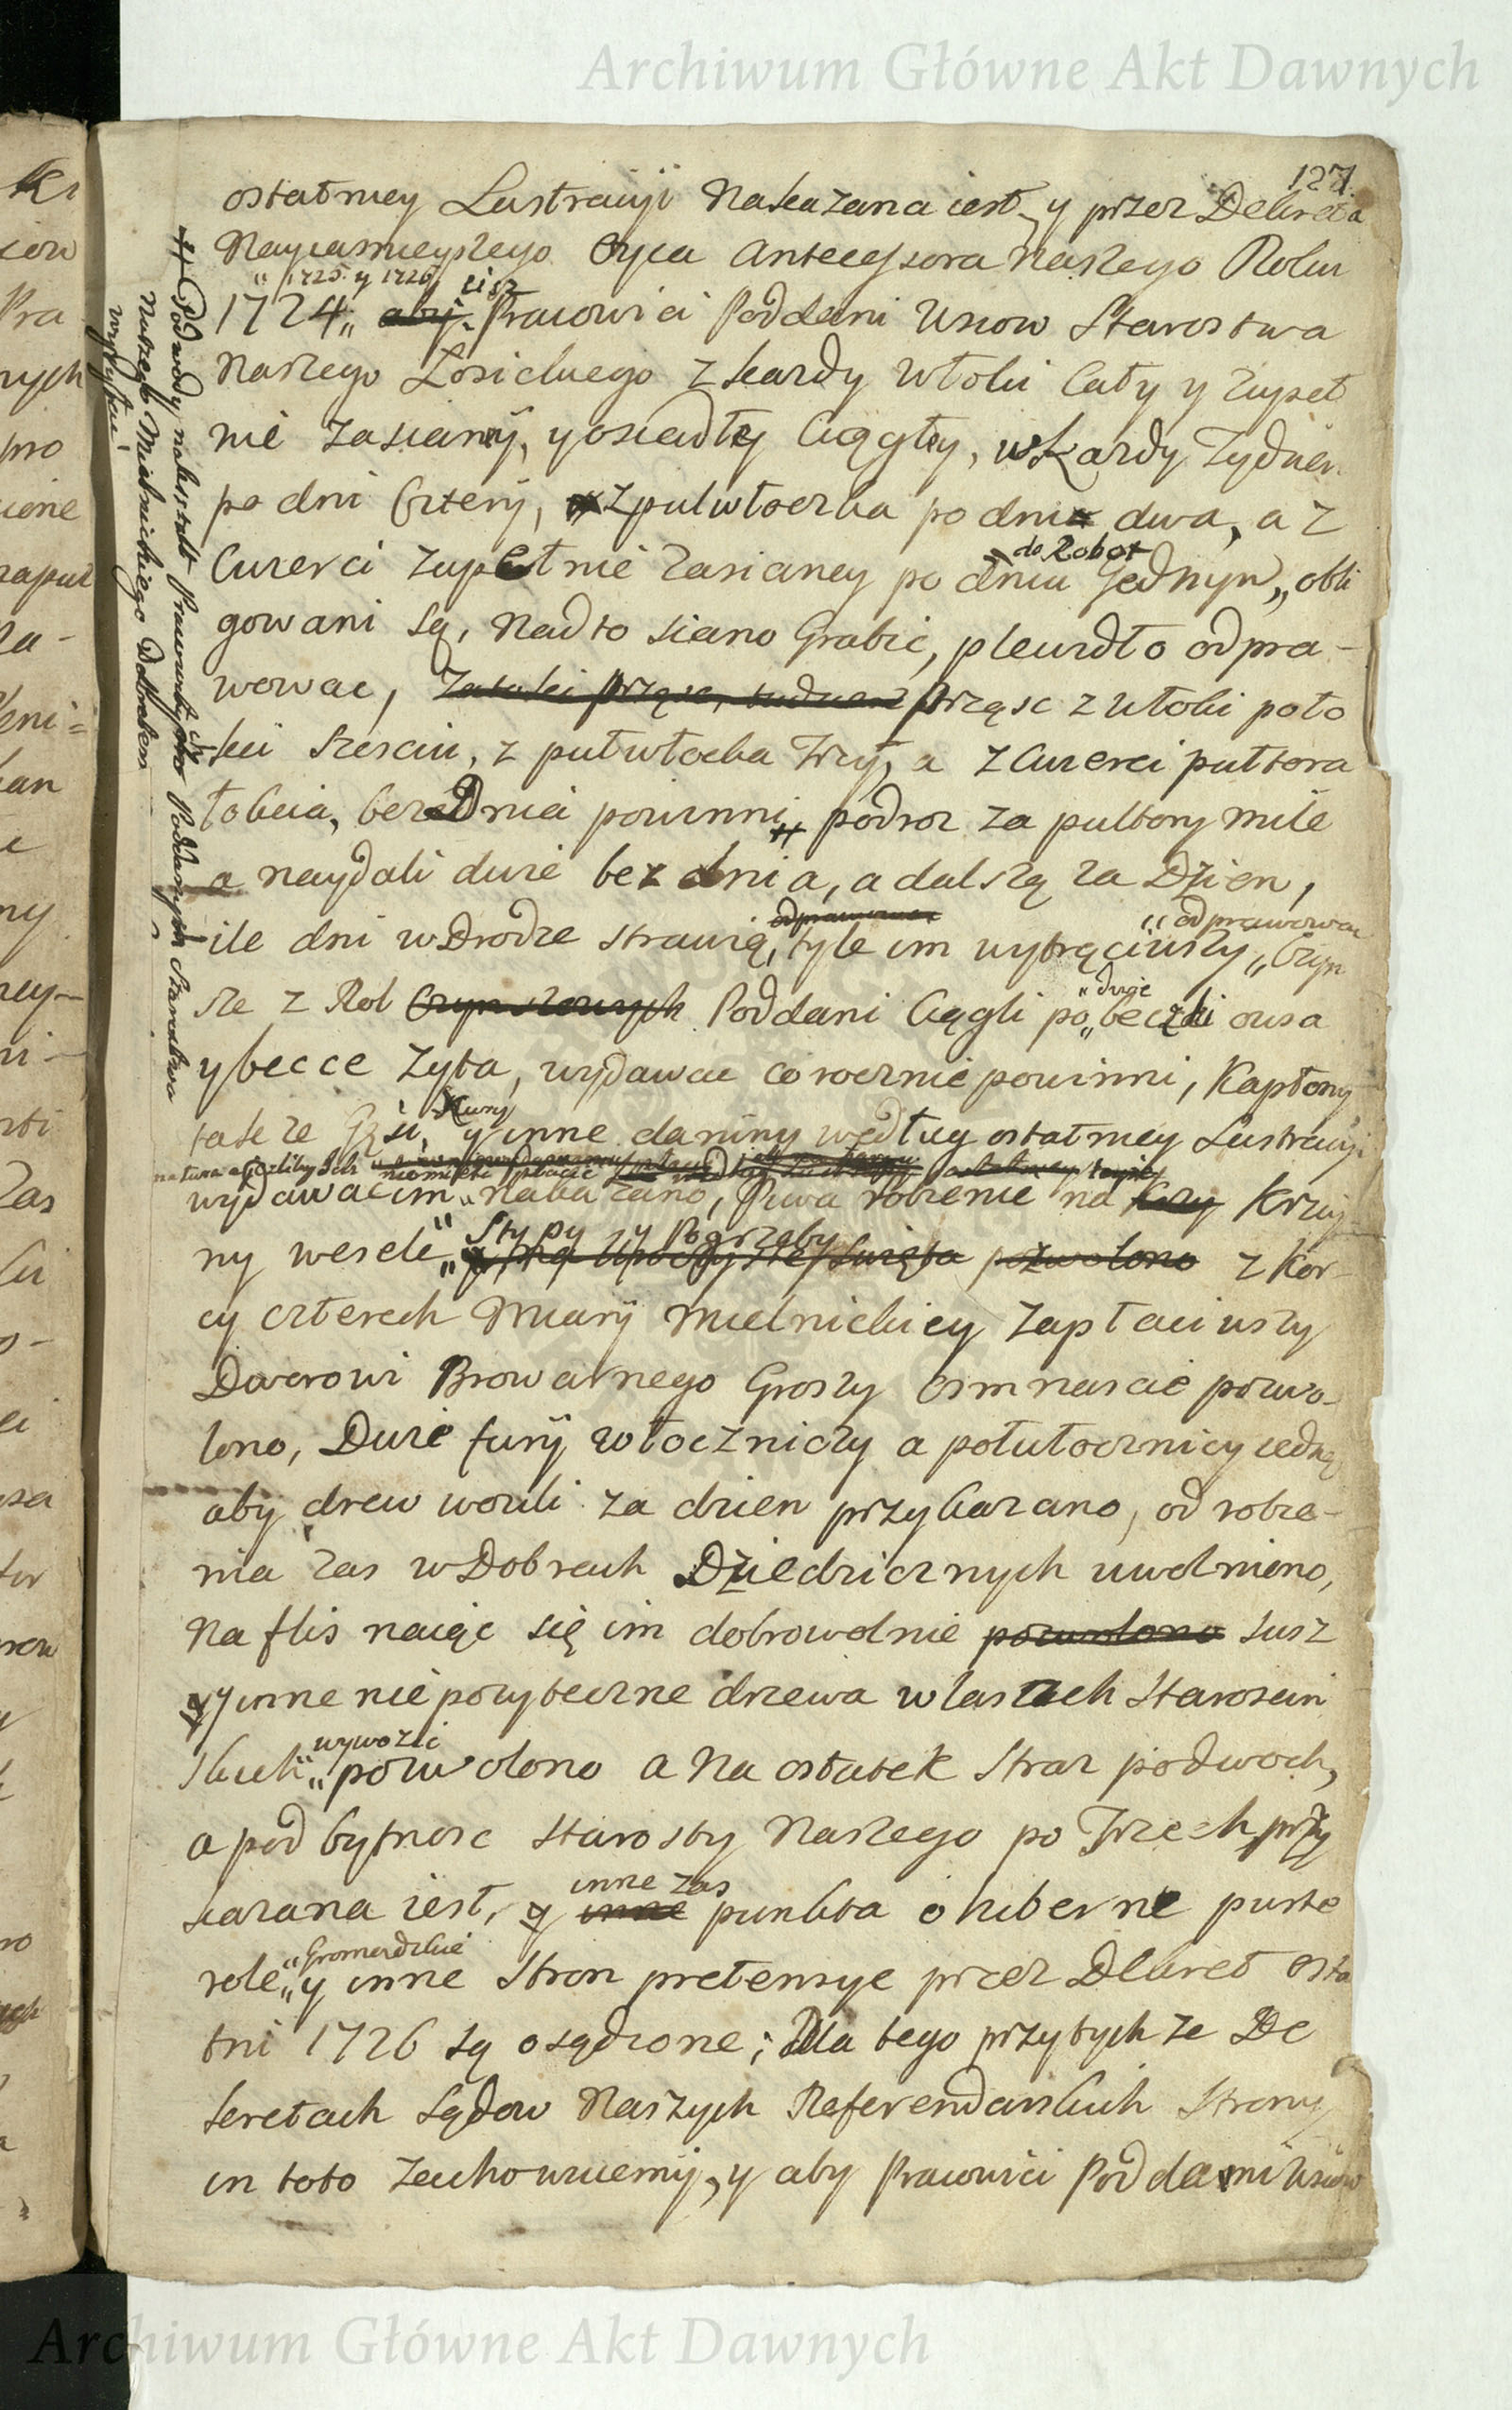 Archiwum Główne Akt Dawnych
127.
ostatniey Lustracyi Nakazana iest y przez Dekreta
Nayiasnieyszego Oyca Antecessora Naszego Roku
" 1725. y 1726 cisz
1724 „ aby Pracowici Poddani Wsiow Starostwa
Naszego Łosickiego z kazdy Włoki Cały y zupeł
nie zasiany, y osiadły Ciągły, w Kazdy Tydzien
po dni Cztery, z pulwłoczka po dni dwa, a z
do Robot
Cwierci zupełnie zasianey po dniu Jednym „ obli
gowani są, Nadto siano Grabic, plewidło odpra-
wowac, prząsc z Włoki poło
kci szesciu, z pułwłoka Trzy, a z Cwierci pułtora
łokcia, bez Dnia powinni # podroz za pultory mile
a naydali dwie bez dnia, a dalszą za Dzien,
odprawowac
ile dni w Drodze strawią, tyle im wytrąciwszy „ Czyn
sze z Rol Czynszowych Poddani Ciągli po „ beczki owsa
" dwie
y becce zyta, wydawac corocznie powinni, Kapłony
Kury
takze Gęsi, y inne daniny według ostatniey Lustracyi
wydawac im „ nakazano, Piwa robienie na Kazy Krzciny
Stypy y Pogrzeby
ny wesele „ y na Uroczyste Swięta pozwolono z Kor-
cy czterech Miary Mielnickiey zapłaciwszy
Dworowi Browarnego Groszy osmnascie pozwo-
lono, Dwie fury włoczniczy a połwłocznicy iedną
aby drew wozili za dzien przykazano, od robie-
nia zas w Dobrach Dziedzicznych uwolniono,
Na flis naiąc się im dobrowolnie pozwolono susz
y inne niepozyteczne drzewa w lasach Staroscin
wywozic
skich „ pozwolono a Na ostatek Straz po dwoch,
a pod bytnosc Starosty Naszego po Trzech przy
inne zas
kazana iest, y inne punkta o hiberne puste
" Gromadzkie
role „ y inne Stron pretensye przez Dekret osta
tni 1726 są osądzone; Dla tego przy tych ze De
kretach Sądow Naszych Referendarskich Strony
in toto zachowuiemy, y aby Pracowici Poddani Wsiow
# Podwody na kształt Pracowitych Poddanych Starostwa
Naszego Mielnickiego Dobrakem
Archiwum Główne Akt Dawnych